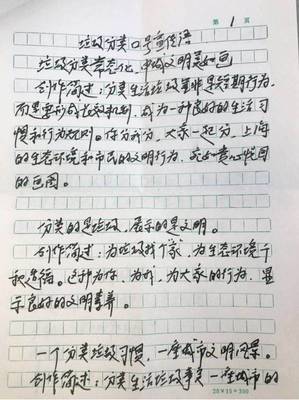 第 1 页
垃圾分类口号宣传语
垃圾分类常态化，申城文明美如画
创作简述：分类生活垃圾并非是短期行为，
而是要形成长效机制，成为一种良好的生活习
惯和行为规则。你分我分，大家一起分，上海
的生态环境和市民的文明行为，宛如赏心悦目
的画图。
分类的是垃圾，展示的是文明。
创作简述：为垃圾找个家，为生态环境
这种为你、为我、为大家的行为，显
示良好的文明素养。
一个分类垃圾习惯，一座城市文明风景。
创作简述：分类生活垃圾事关一座城市的
20×15=300